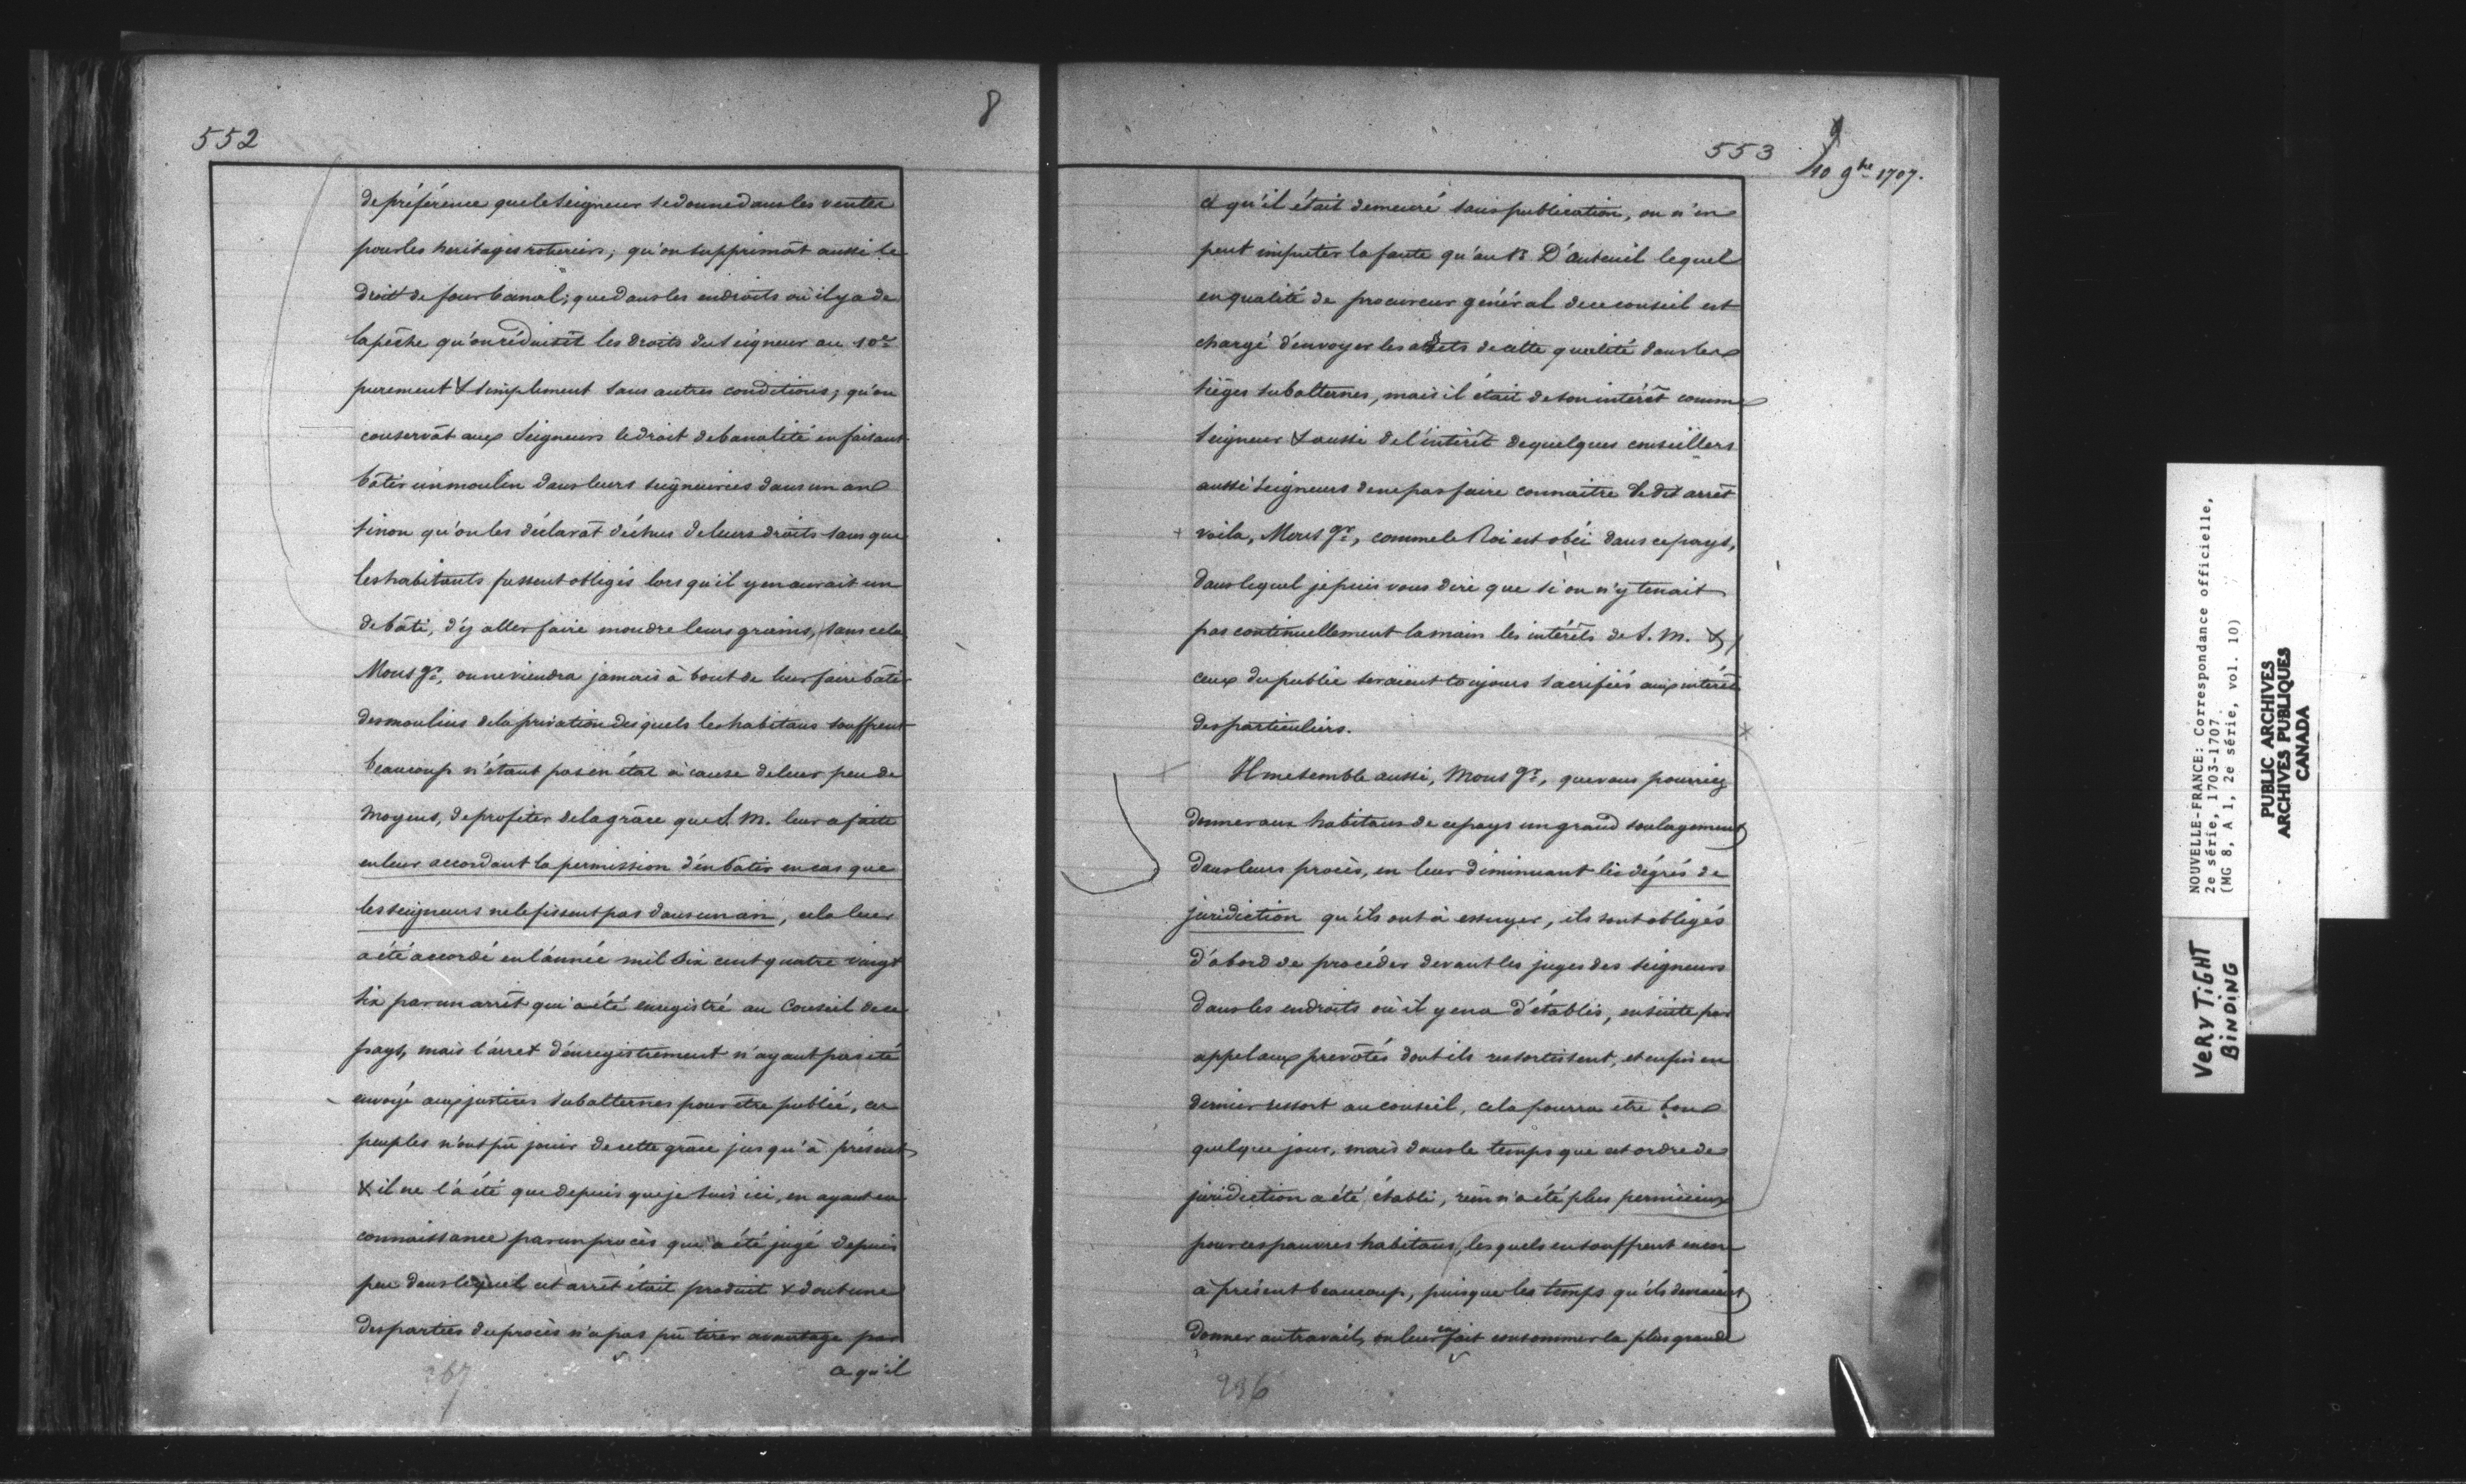 552
8
de préférence que le Seigneur se donne dans les ventes
pour les heritages roturiers; qu'on supprimât aussi le
droit de four banal; que dans les endroits où il y a de
la pêche qu'on réduisît les droits du Seigneur au 10e
purement & simplement sans autres conditions; qu'on
conservât aux Seigneurs le droit de banalité en faisant
bâtir un moulin dans leurs seigneuries dans un an
sinon qu'on les déclarât déchus de leurs droits sans que
les habitants fussent obligés lors qu'il y en aurait un
de bâti, d'y aller faire moudre leurs grains, sans cela
Mons gr, on ne viendra jamais à bout de leur faire bâtir
des moulins de la privation desquels les habitans souffrent
beaucoup n'étant pas en état à cause de leur peu de
moyens, de profiter de la grâce que S. M. leur a faite
en leur accordant la permission d'en bâtir en cas que
les seigneurs ne le fissent pas dans un an, cela leur
a été accordé en l'année mil six cent quatre vingt
six par un arrêt qui a été enregistré au Conseil de ce
pays, mais l'arret d'enregistrement n'ayant pas été
envoyé aux justices subalternes pour être publié, ces
peuples n'ont pû jouir de cette grâce jusqu'à présent
& il ne l'a été que depuis que je suis ici, en ayant eu
connaissance par un procès qui a été jugé depuis
peu dans lequel cet arrêt était produit & dont une
des parties du procès n'a pas pû tirer avantage par
ce qu'il
267
553
9
10 9bre 1707.
ce qu'il était demeuré sans publication, on n'en
peut imputer la faute qu'au Sr D'auteuil lequel
en qualité de procureur général de ce conseil est
chargé d'envoyer les arrêts de cette qualité dans les
sièges subalternes, mais il était de son intérêt comme
Seigneur & aussi de l'intérêt de quelques conseillers
aussi seigneurs de ne pas faire connaitre le dit arrêt
voila, Mons gr, comme le Roi est obéi dans ce pays,
dans lequel je puis vous dire que si on n'y tenait
pas continuellement la main les intérêts de S. M. &
ceux du public seraient toujours sacrifiés aux intérêts
des particuliers.
Il me semble aussi, Mons gr, que vous pourriez
donner aux habitans de ce pays un grand soulagement
dans leurs procès, en leur diminuant les dégrés de
juridiction qu'ils ont à essuyer, ils sont obligés
d'abord de procéder devant les juges des seigneurs
dans les endroits où il y en a d'établis, ensuite par
appel aux prevôtés dont ils ressortissent, et enfin en
dernier ressort au conseil, cela pourra être bon
quelque jour, mais dans le temps que cet ordre de
juridiction a été établi, rien n'a été plus pernicieux
pour ces pauvres habitans, lesquels en souffrent encore
à présent beaucoup, puisque les temps qu'ils devraient
donner au travail, on leur en fait consommer la plus grande
296
NOUVELLE-FRANCE: Correspondance officielle,
2e série, 1703-1707
(MG 8, A 1, 2e série, vol. 10)
PUBLIC ARCHIVES
ARCHIVES PUBLIQUES
CANADA
VERY TiGHT
BiNDiNG